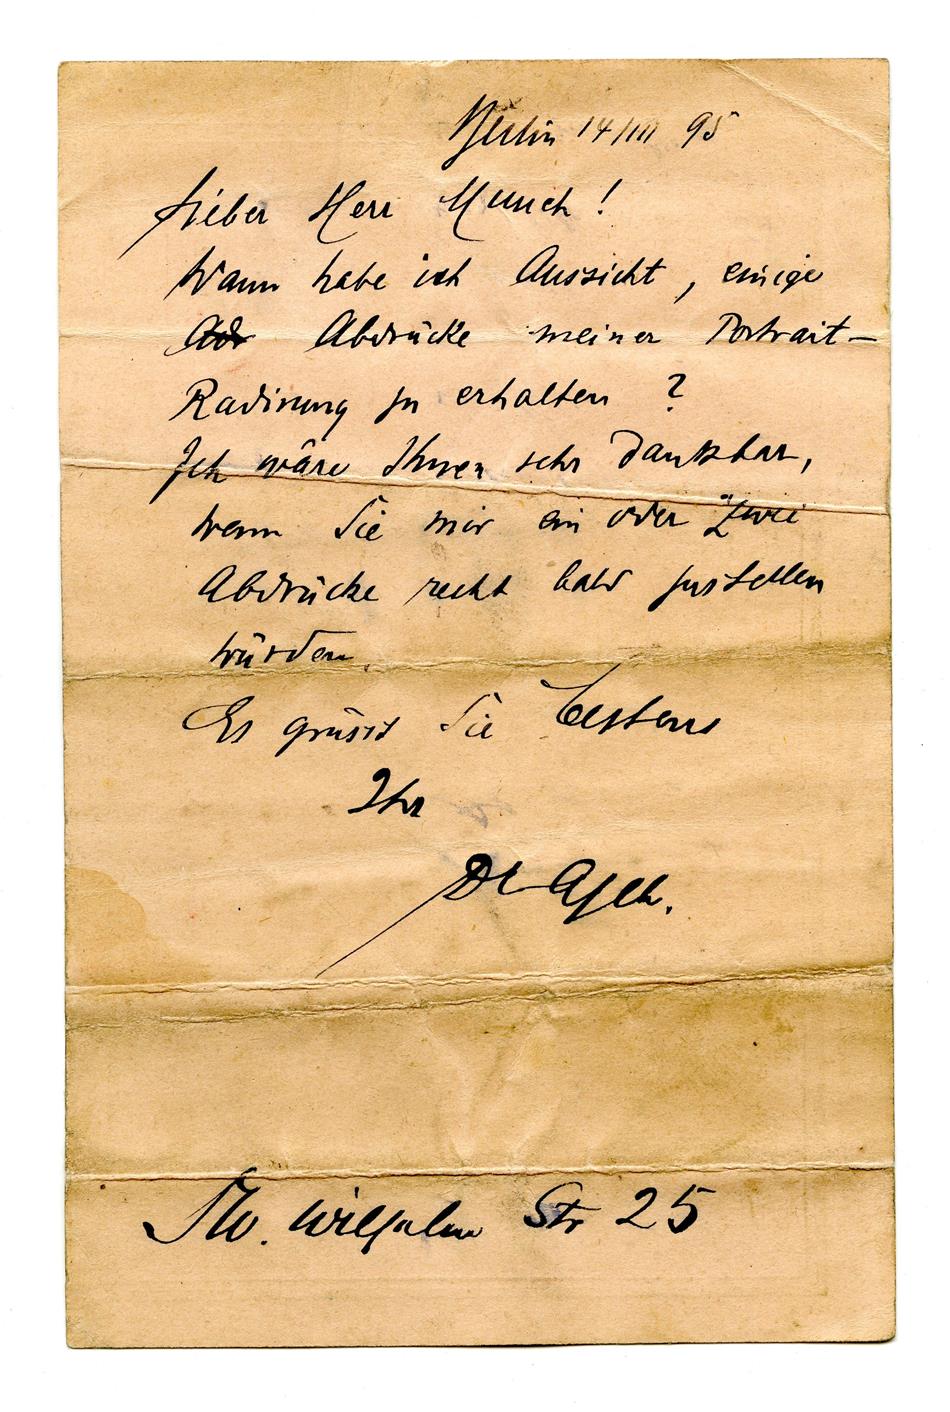 Berlin 14/III 95
Lieber Herr Munch!
Wann habe ich Aussicht, einige
Abdrücke meiner Portrait-
Radirung zu erhalten?
Ich wäre Ihnen sehr dankbar,
wenn Sie mir ein oder zwei
Abdrücke recht bald zustellen
würden.
Es grüsst Sie bestens
Ihr
Dr Asch.
Wilhelm Str 25